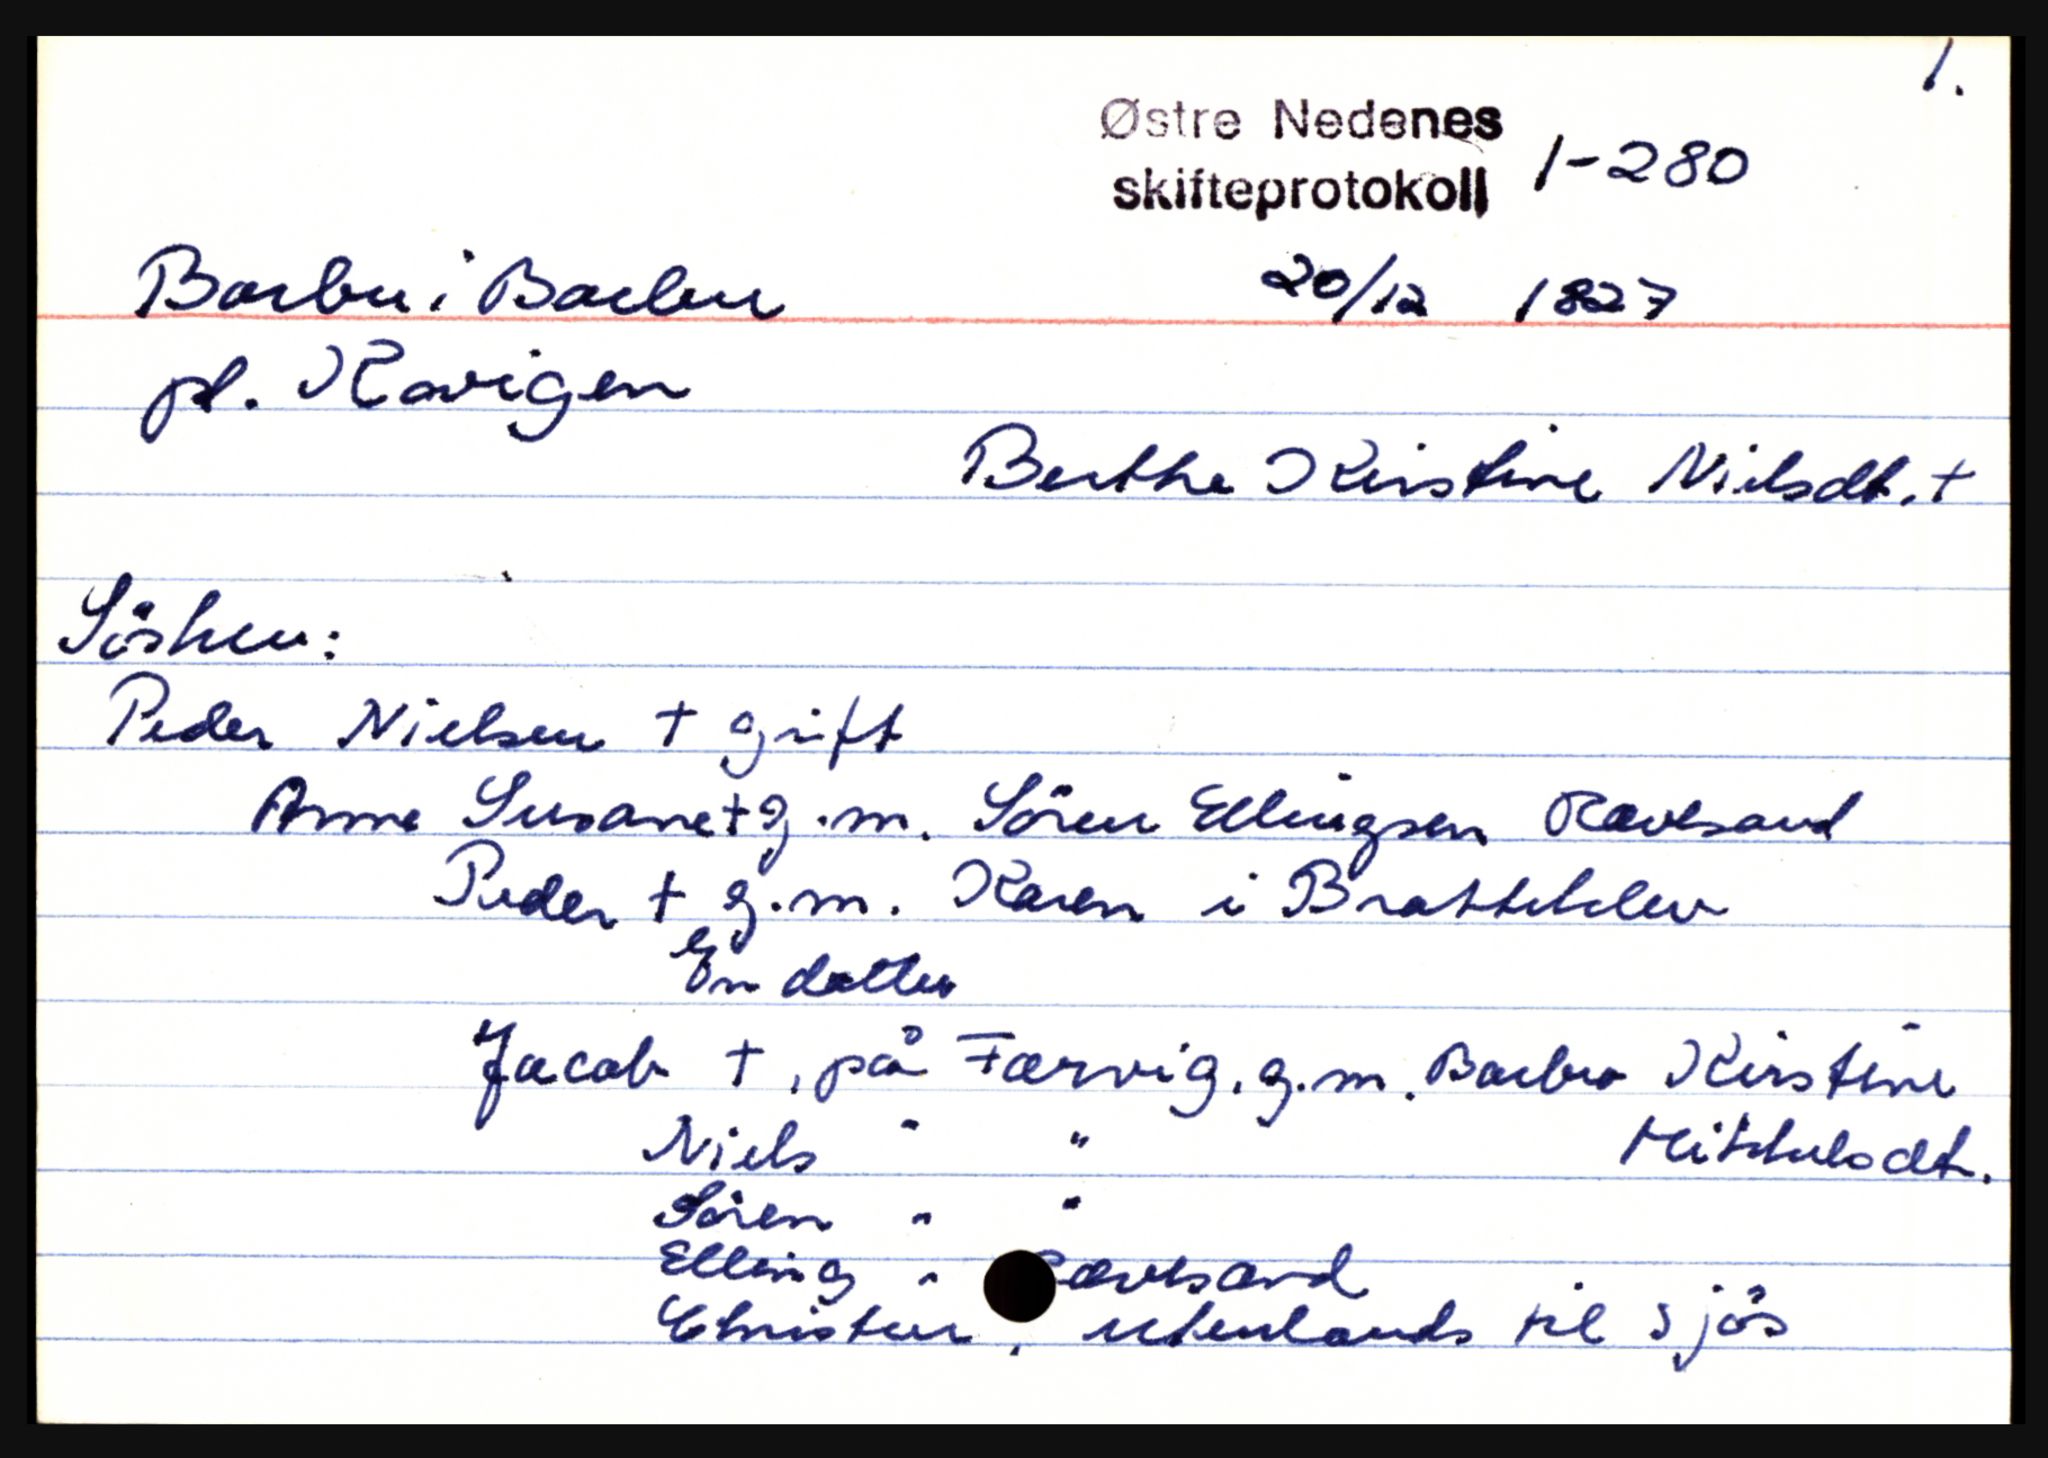 1.
Østre Nedenes
skifteprotokoll 1-280
Barbu i Barbu 20/12 1827
pl. Kavigen
Berthe Kirstine Nielsdt. +
Sösken:
Peder Nielsen + gift
Anne Susane + g.m. Sören Ellingsen Rævesand
Peder + g.m. Karen i Bratteklev
En datter
Jacob +, på Færvig, g.m. Barbro Kirstine
Niels " " Mikkelsdt.
Sören " "
Elling " Rævesand
Christen, utenlands til sjös